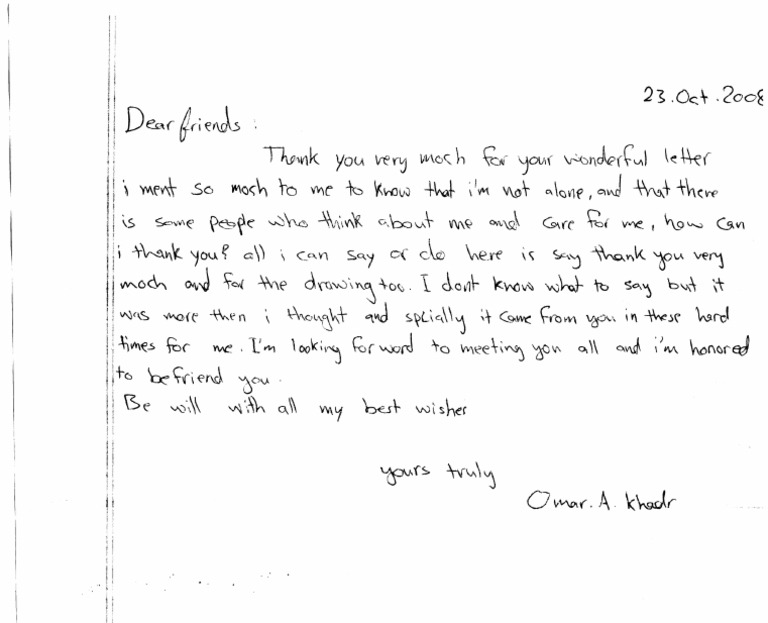 23.Oct.2008
Dear friends :
Thank you very moch for your wonderful letter
i ment so mosh to me to know that i'm not alone, and that there
is some people who think about me and care for me, how can
i thank you? all i can say or do here is say thank you very
moch and for the drawing too. I dont know what to say but it
was more then i thought and splially it came from you in these hard
times for me. I'm looking forword to meeting you all and i'm honored
to befriend you.
Be will with all my best wisher
yours truly
Omar. A. Khadr